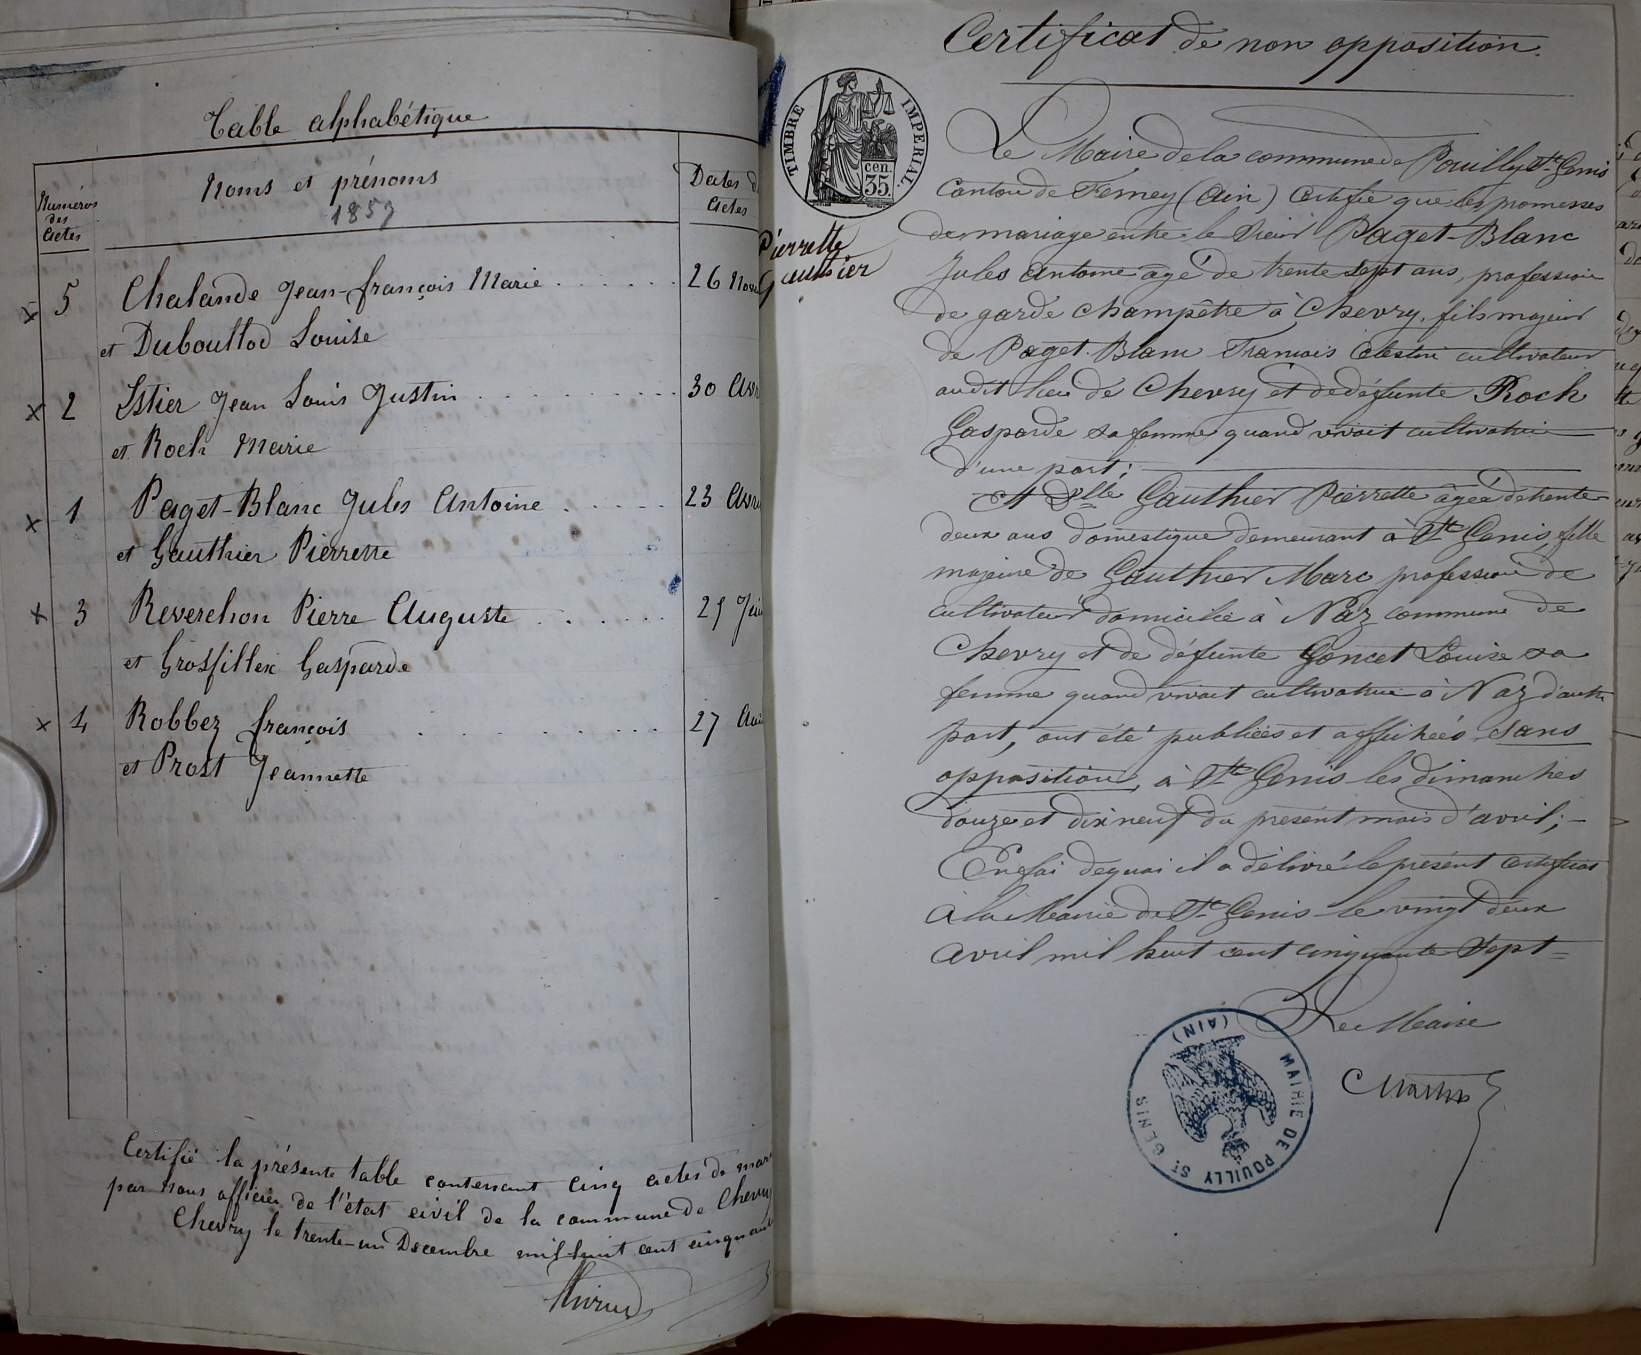 Table alphabétique
Numéros des Actes
Noms et prénoms
1857
Dates d
Actes
x 5 Chalande Jean-françois Marie . . . . . . 26 Nove
et Duboullod Louise
x 2 Istier Jean Louis Justin . . . . . . . . . . 30 Avr
et Roch Marie
x 1 Paget-Blanc Jules Antoine . . . . . 23 Avri
et Gauthier Pierrette
x 3 Reverchon Pierre Auguste . . . . . . 25 Jui
et Grosfillex Gasparde
x 4 Robbez françois . . . . . . . . . . 27
et Prost Jeannette
Certifié la présente table contenant cinq actes de mar
par nous officier de l'état civil de la commune de Chevry
Chevry le trente-un Decembre mil huit cent cinquante
Certificat de non opposition.
TIMBRE IMPERIAL.
cen.
35.
Pierrette
Gauthier
Le Maire de la commune de Pouilly St Genis
Canton de Ferney (Ain) Certifie que les promesses
de mariage entre le Sieur Paget-Blanc
Jules Antoine agé de trente sept ans, profession
de garde champêtre à Chevry, fils majeur
de Paget-Blanc Francois Célestin cultivateur
audit lieu de Chevry et de défunte Roch
Gasparde sa femme quand vivait cultivatrice
d'une part;
Et Dlle Gauthier Pierrette âgée de trente
deux ans domestique demeurant à St Genis, fille
majeure de Gauthier Marc profession de
cultivateur domicilié à Naz commune de
Chevry et de défunte Goncet Louise sa
femme quand vivait cultivatrice à Naz d'autre
part, ont été publiées et affichées sans
opposition, à St Genis les dimanches
douze et dix neuf du présent mois d'avril;
En foi de quoi il a délivré le présent certificat
A la Mairie de St Genis le vingt deux
avril mil huit cent cinquante sept
Le Maire
MAIRIE DE POUILLY ST GENIS
(AIN)